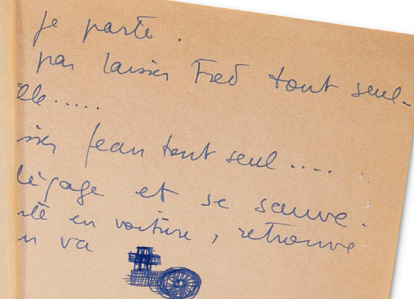 je parte.
pas laisser Fred tout seul-
elle.....
Jean tout seul....
dégage et se sauve.
en voiture, retrouve
va